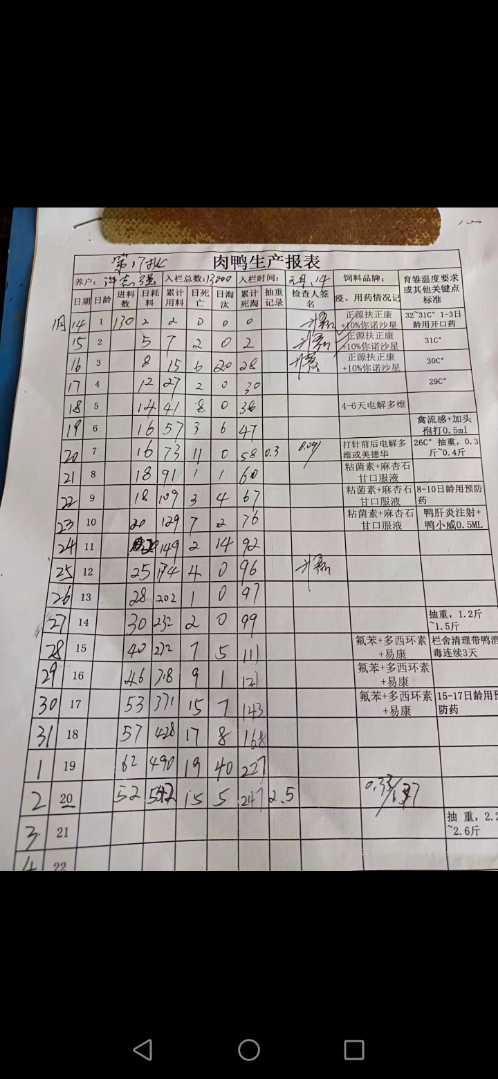 第17批 肉鸭生产报表
养户: 入栏总数: 13000 入栏时间: 14 饲料品牌: 育雏温度要求或其他关键点标准
日期 日龄 进料数 日耗料 累计用料 日死亡 日淘汰 累计死淘 抽重记录 检查人签名 用药情况记
14 1 130 2 2 0 0 0 正源扶正康+10%你诺沙星 32~31C° 1-3日龄用开口药
15 2 5 7 2 0 2 正源扶正康+10%你诺沙星 31C°
16 3 8 15 6 20 28 正源扶正康+10%你诺沙星 30C°
17 4 12 27 2 0 30 29C°
18 5 14 41 8 0 38 4-6天电解多维
19 6 16 57 3 6 47 禽流感+加头孢打0.5ml
20 7 16 73 11 0 58 0.3 打针前后电解多维或美德华 26C° 抽重,0.3斤~0.4斤
21 8 18 91 1 1 60 粘菌素+麻杏石甘口服液
22 9 18 109 3 4 67 粘菌素+麻杏石甘口服液 8-10日龄用预防药
23 10 20 129 7 2 76 粘菌素+麻杏石甘口服液 鸭肝炎注射+鸭小威0.5ML
24 11 149 2 14 92
25 12 25 174 4 0 96
26 13 28 202 1 0 97
27 14 30 232 2 0 99 抽重,1.2斤~1.5斤
28 15 40 272 7 5 111 氟苯+多西环素+易康 栏舍清理带鸭消毒连续3天
29 16 46 318 9 1 121 氟苯+多西环素+易康
30 17 53 371 15 7 143 氟苯+多西环素+易康 15-17日龄用预防药
31 18 57 428 17 8 168
1 19 62 490 19 40 227
2 20 52 542 15 5 247 2.5
3 21 抽重,2.2~2.6斤
4 22